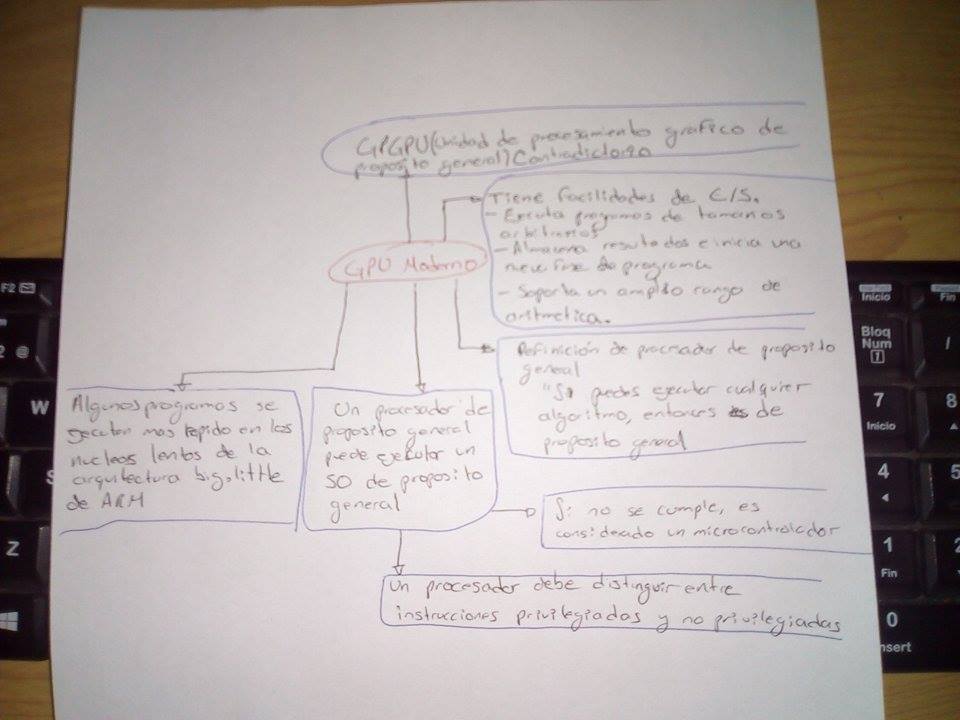 GPGPU(Unidad de procesamiento grafico de
proposito general) Contradictorio
Tiene facilidades de C/S.
- Ejecuta programas de tamanos
arbitrarios
- Almacena resultados e inicia una
new fase de programa
- Soporta un amplio rango de
aritmetica.
GPU Moderno
Definición de procesador de proposito
general
"Si puedes ejecutar cualquier
algoritmo, entonces es de
proposito general
Algunos programas se
ejecutan mas rapido en los
nucleos lentos de la
arquitectura big.little
de ARM
Un procesador de
proposito general
puede ejecutar un
SO de proposito
general
Si no se cumple, es
considerado un microcontrolador
Un procesador debe distinguir entre
instrucciones privilegiadas y no privilegiadas
F2
2 @
W
S
Z
Inicio
Fin
Bloq
Num
1
/
7
Inicio
8
4
5
1
Fin
2
0
Insert